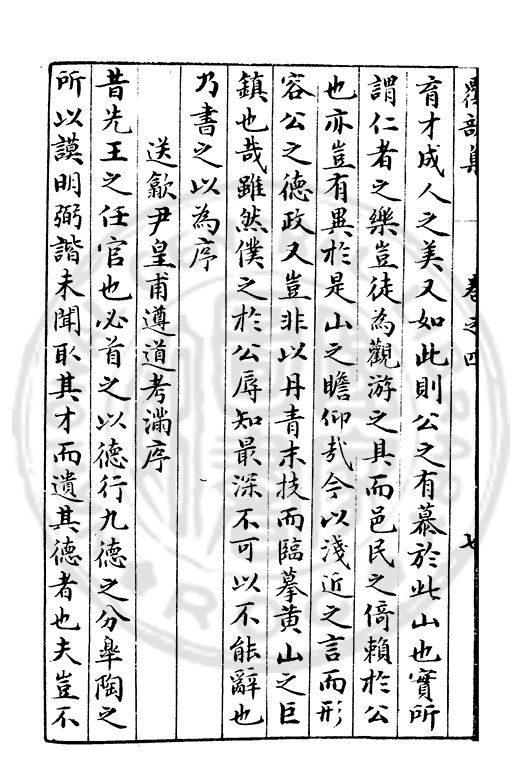 育才成人之美又如此則公之有慕於此山也實所
謂仁者之樂豈徒為觀游之具而邑民之倚賴於公
也亦豈有異於是山之瞻仰哉今以淺近之言而形
容公之德政又豈非以丹青末技而臨摹黃山之巨
鎮也哉雖然僕之於公辱知最深不可以不能辭也
乃書之以為序
送歙尹皇甫遵道考滿序
昔先王之任官也必首之以德行九德之分皋陶之
所以謨明弼諧未聞取其才而遺其德者也夫豈不